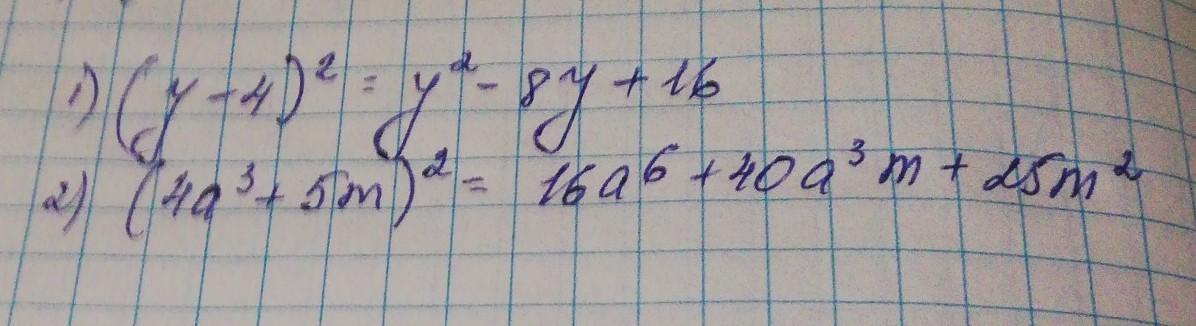 1) (y-4)² = y² - 8y + 16
2) (4a³ + 5m)² = 16a⁶ + 40a³m + 25m²